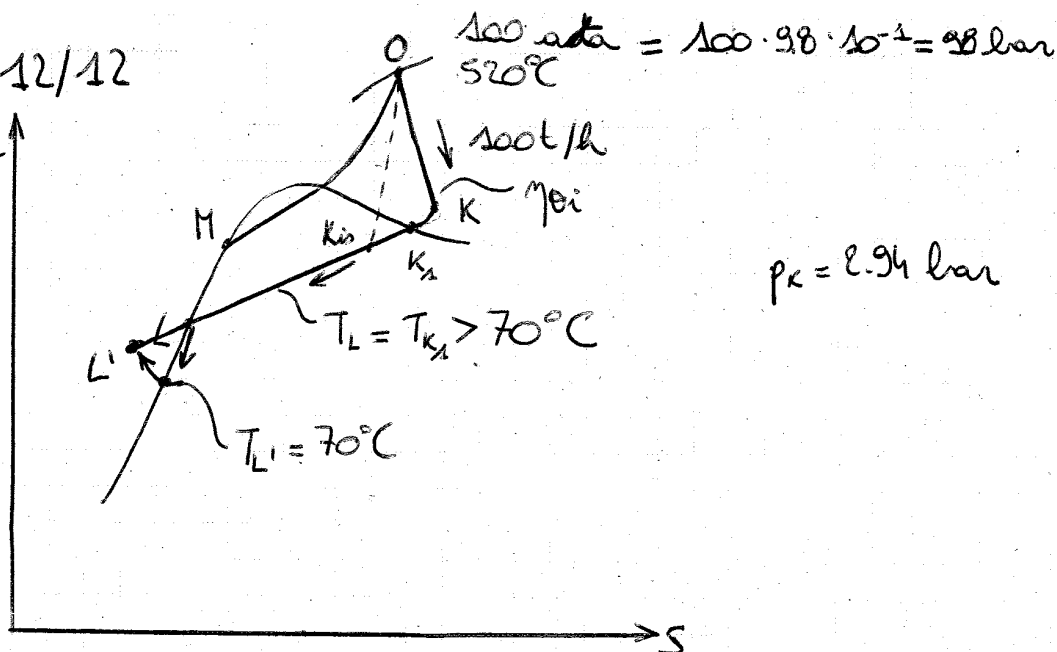 12/12
O
100 ata = 100·98·10⁻¹ = 98 bar
520°C
100 t/h
K
ηθi
M
Kis
K₁
pK = 2.94 bar
TL = TK₁ > 70°C
L'
TL' = 70°C
S